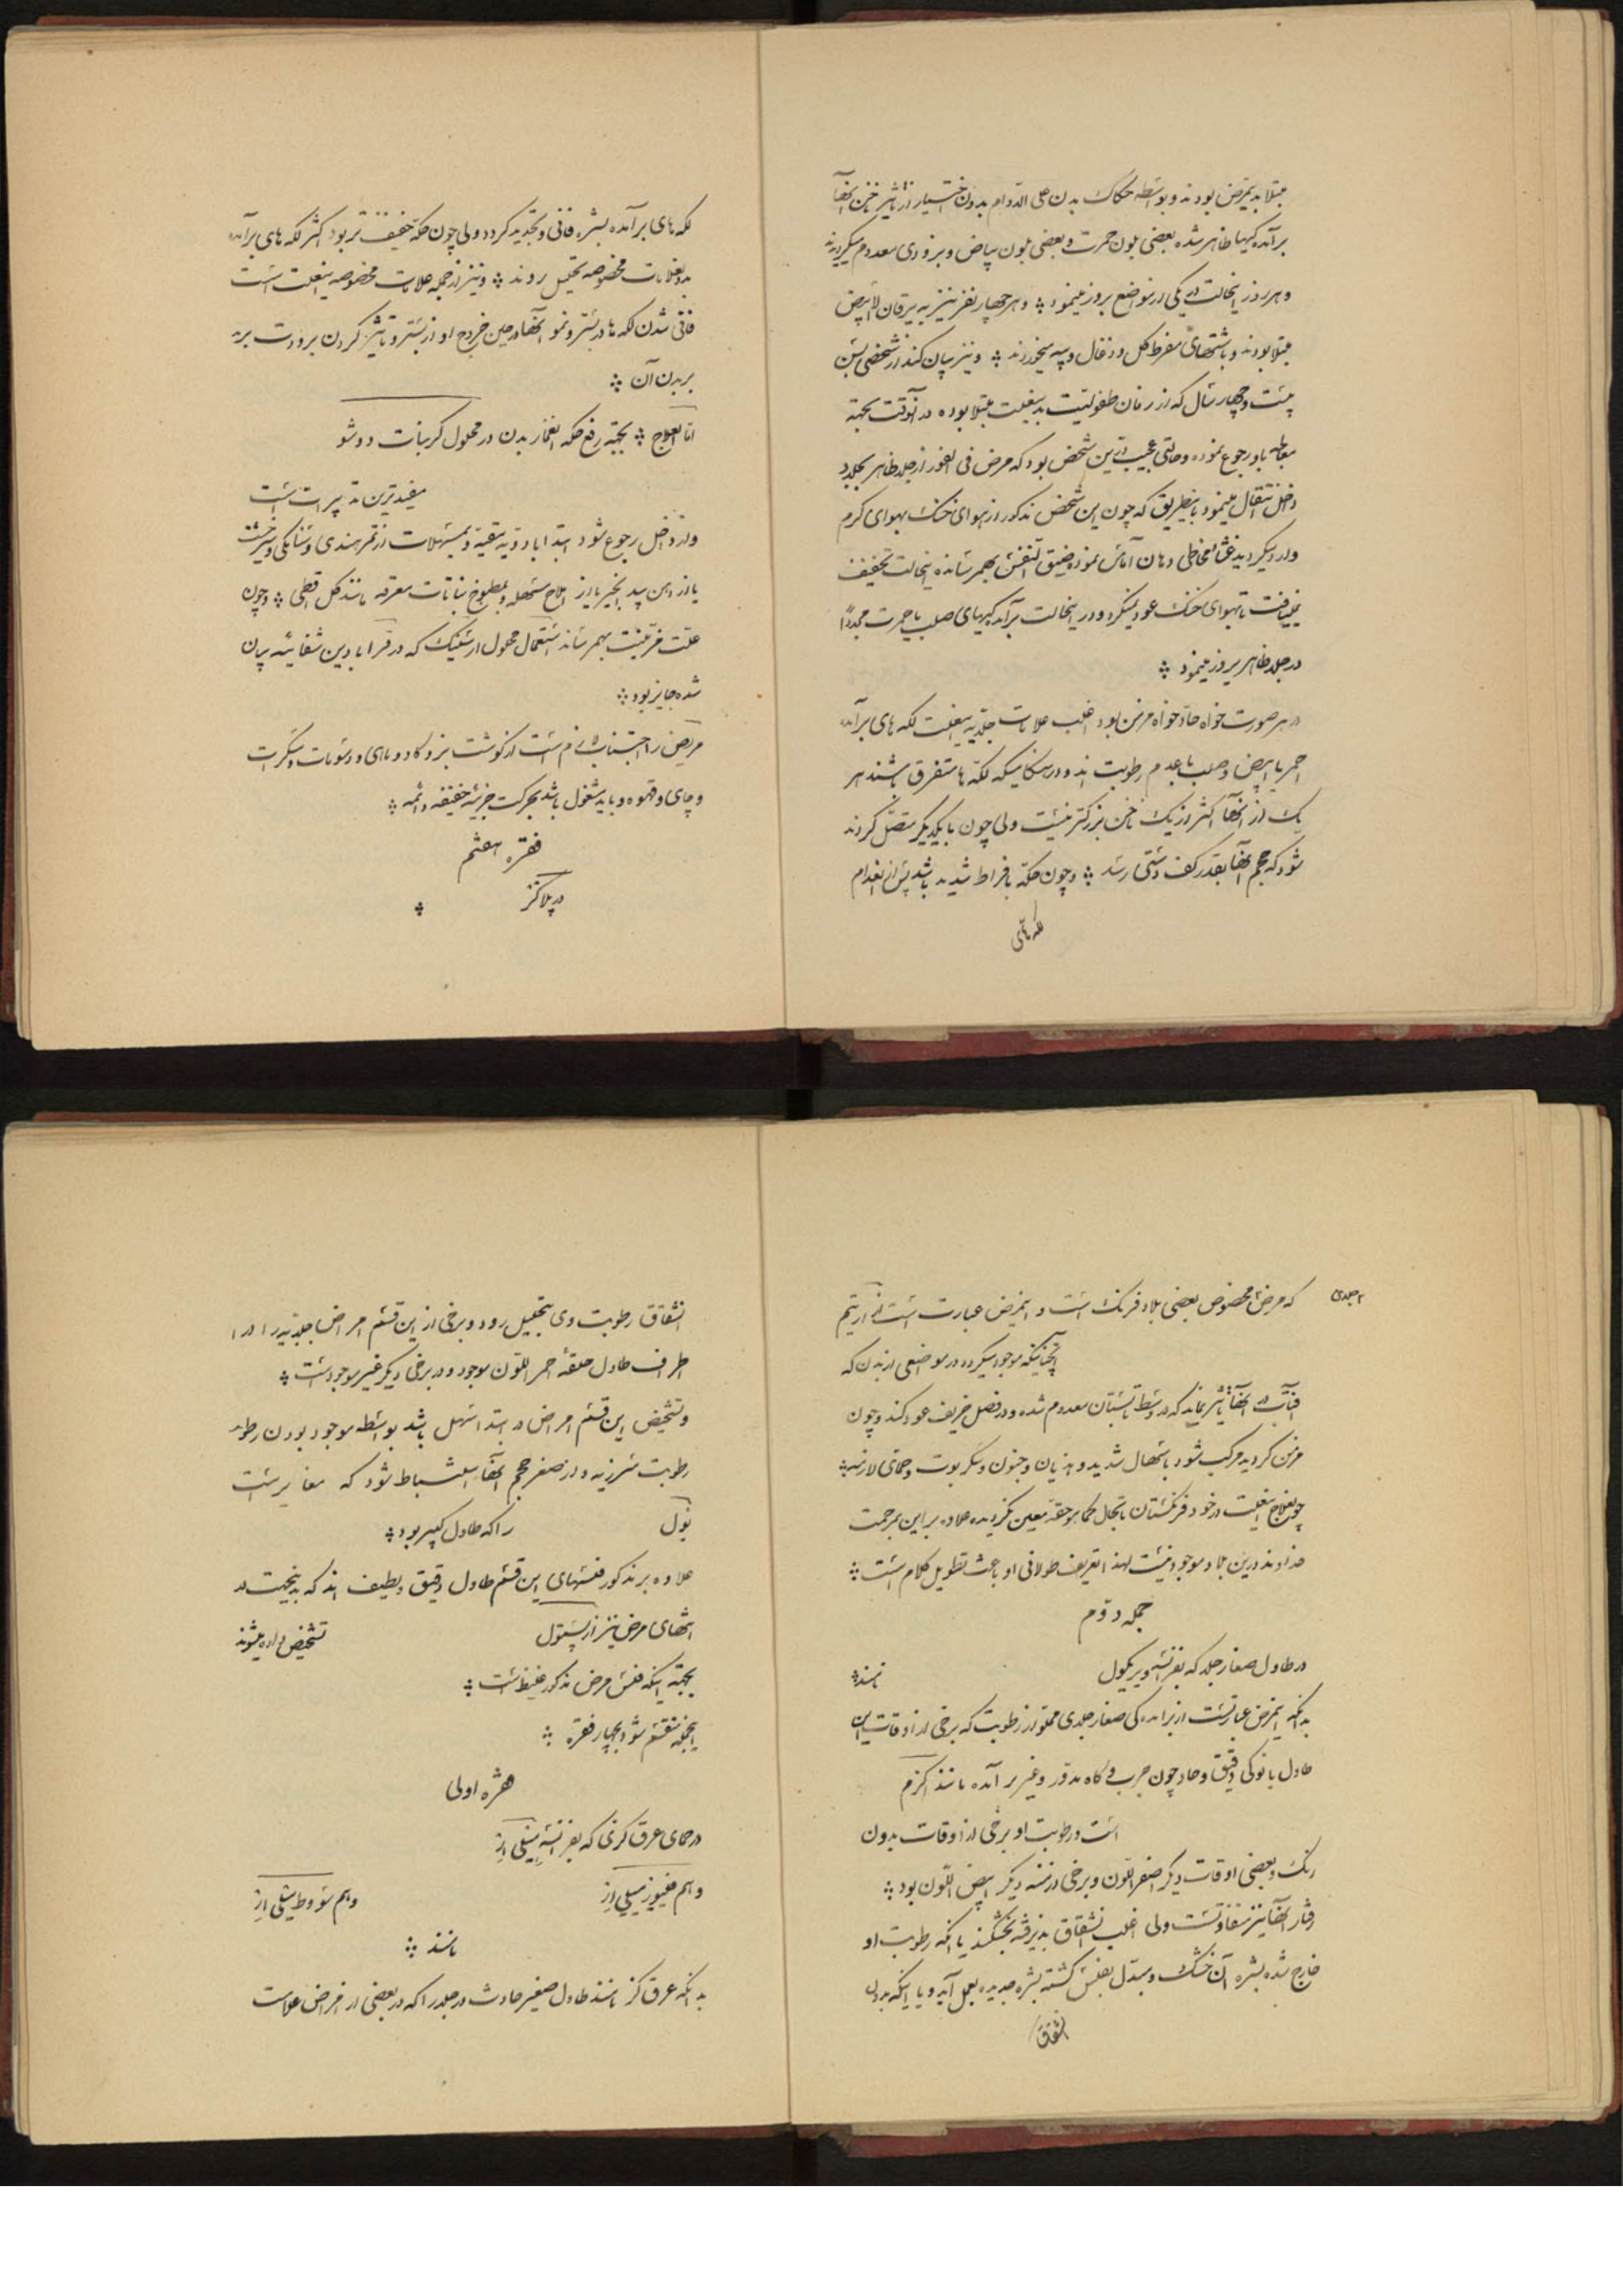 مبتلا بدینمرض بودند و بواسطه حکاک بدن علی الدوام بدون اختیار از تاثیر ناخن آنها
برآمده‌گیها ظاهر شده بعضی بلون حمرت و بعضی بلون بیاض و بزودی معدوم میگردیدند
و هر روز اینحالت در یکی از مواضع بروز مینمود و هر چهار نفر نیز به یرقان الابیض
مبتلا بودند و باشتهای مفرط گل و زغال و پیه میخوردند و نیز بیان کند از شخصی بسن
بیست و چهار سال که از زمان طفولیت بدینعلت مبتلا بوده در آنوقت بجهته
معالجه باو رجوع نموده و حالتی عجیب در این شخص بود که مرض فی الفور از جلد ظاهر بجلد
داخل انتقال مینمود باینطریق که چون این شخص مذکور از هوای خنک بهوای گرم
وارد میگردید غشاء مخاطی دهان آماس نموده ضیق النفس بهمرسانده اینحالت تخفیف
نمییافت تا بهوای خنک عود میکرد و در اینحالت برآمده‌گیهای صلب با حمرت مجدداً
در جلد ظاهر بروز مینمود
در هر صورت خواه حاد خواه مزمن بود اغلب علامات جلدیه اینعلت لکه های برآمده
احمر یا ابیض و صلب با عدم رطوبت اند و در هنگامیکه لکه ها متفرق باشند هر
یک از آنها اکثر از یک ناخن بزرگتر نیست ولی چون با یکدیگر متصل گردند
شود که حجم آنها بقدر کف دستی رسد و چون حکه بافراط شدید باشد پس از انعدام
لکه های
لکه های برآمده بشره فانی و تجدید گردد ولی چون حکه خفیف تر بود اکثر لکه های برآمده
بدون علامات مخصوصه تحلیل روند و نیز از جمله علامات مخصوصه اینعلت است
فانی شدن لکه ها در بستر و نمو آنها در حین خروج او از بستر و تاثیر کردن برودت بر
بر بدن آن
اما العلاج بجهته رفع حکه انغمار بدن در محلول کربنات دو سو
مفیدترین تدبیرات است
و از داخل رجوع شود ابتدا بادویه مقیه و بمسهلات از تمر هندی و سنامکی و شیرخشت
یا از دهن بید انجیر یا از املاح مسهله و بمطبوخ نباتات معرقه مانند گل اقطی و چون
علت مزمنیت بهمرساند استعمال محلول ارسنیک که در قرابادین شفائیه بیان
شده جایز بود
مریض را اجتناب لازم است از گوشت بز و گاو و ماهی و دسومات و مسکرات
و چای و قهوه و باید مشغول باشد بحرکت جزئیه خفیفه دائمه
فقره هفتم
در پلاگر
۲ جلدی
که مرض مخصوص بعضی بلاد فرنگ است و اینمرض عبارت است از اریتم
آنچنانیکه موجود میگردد در مواضعی از بدن که
آفتاب در آنها تاثیر نماید که در وسط تابستان معدوم شده و در فصل خریف عود کند و چون
مزمن گردید مرکب شود باسهال شدید و هذیان و جنون و سکربوت و حمای لازمه
چون علاج اینعلت در خود فرنگستان تا بحال کما هو حقه معین نگردیده علاوه بر این بمرحمت
خداوند در این بلاد موجود نیست لهذا تعریف طولانی او باعث تطویل کلام است
جمله دوم
در طاول صغار جلد که بفرانسه ویزیکول
نامند
بدانکه اینمرض عبارتست از برآمده گی صغار جلدی مملو از رطوبت که برخی از اوقات این
طاول با نوکی دقیق و حاد چون جرب و گاه مدور و غیر برآمده مانند اکزم
است و رطوبت او برخی از اوقات بدون
رنگ و بعضی اوقات دیگر اصفر اللون و برخی ازمنه دیگر ابیض اللون بود
رفتار آنها نیز متفاوتست ولی اغلب انشقاق پذیرفته بخشکند یا آنکه رطوبت او
خارج شده بشره آن خشک و مبدل بفلس گشته بشره جدیده بعمل آید و یا اینکه بدون
انشقاق
انشقاق رطوبت وی بتحلیل رود و برخی از این قسم امراض جلدیه را در
اطراف طاول حلقهٔ احمر اللون موجود و در برخی دیگر غیر موجود است
و تشخیص این قسم امراض در ابتدا سهل باشد بواسطه موجود بودن رطو
رطوبت شرزیه و از صغر حجم آنها استنباط شود که مغایر است
بول
را که طاول کبیر بود
علاوه بر مذکور فلسهای این قسم طاول دقیق و لطیف اند که بدینجهت در
انتهای مرض نیز از پستول
تشخیص داده میشوند
بجهته اینکه فلس مرض مذکور غلیظ است
اینجمله منقسم شود بچهار فقره
فقره اولی
در حمای عرق گزی که بفرانسه میلی ار
و هم فیور میلی ار
و هم سودط میلی ار
نامند
بدانکه عرق گز نامند طاول صغیر حادث در جلد را که در بعضی از امراض علامت